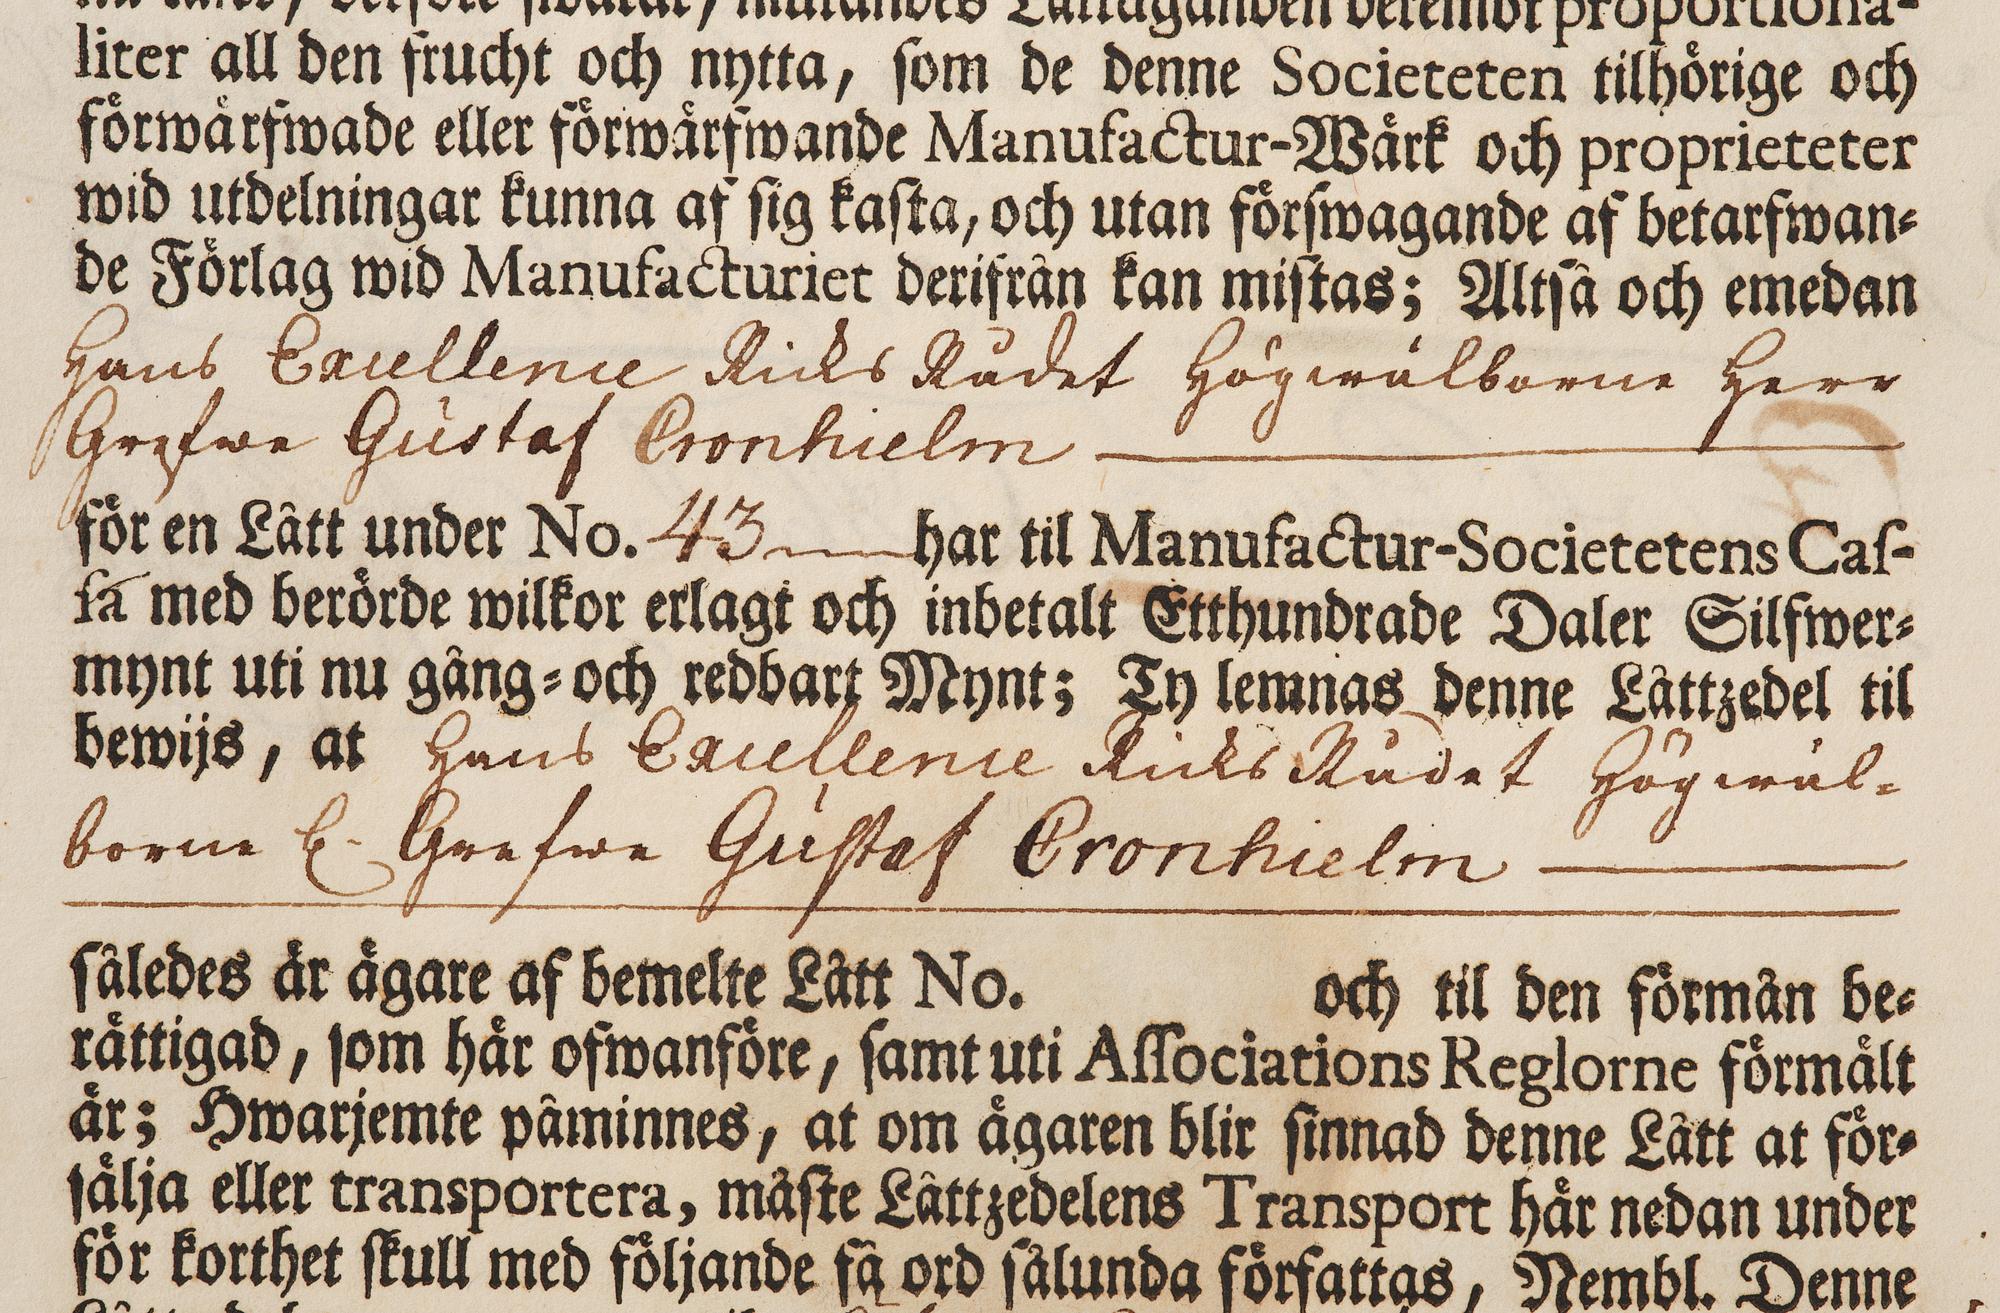 liter all den frucht och nytta, som de denne Societeten tilhörige och
förwärfwade eller förwärfwande Manufactur-Wärk och proprieteter
wid utdelningar kunna af sig kasta, och utan förswagande af betarfwan-
de Förlag wid Manufacturiet derifrån kan mistas; Altså och emedan
Hans Excellence Ricks Rådet Högwälborne Herr
Grefwe Gustaf Cronhielm
för en Lått under No. 43 har til Manufactur-Societetens Cas-
sa med berörde wilkor erlagt och inbetalt Etthundrade Daler Silfwer-
mynt uti nu gång-och redbart Mynt; Ty lemnas denne Låttzedel til
bewijs, at Hans Excellence Ricks Rådet Högwäl-
borne H. Grefwe Gustaf Cronhielm
således är ägare af bemelte Lått No. och til den förmån be-
rättigad, som här ofwanföre, samt uti Associations Reglorne förmält
är; Hwarjemte påminnes, at om ägaren blir sinnad denne Lått at för-
sälja eller transportera, måste Låttzedelens Transport här nedan under
för korthet skull med följande få ord sålunda författas, Nembl. Denne